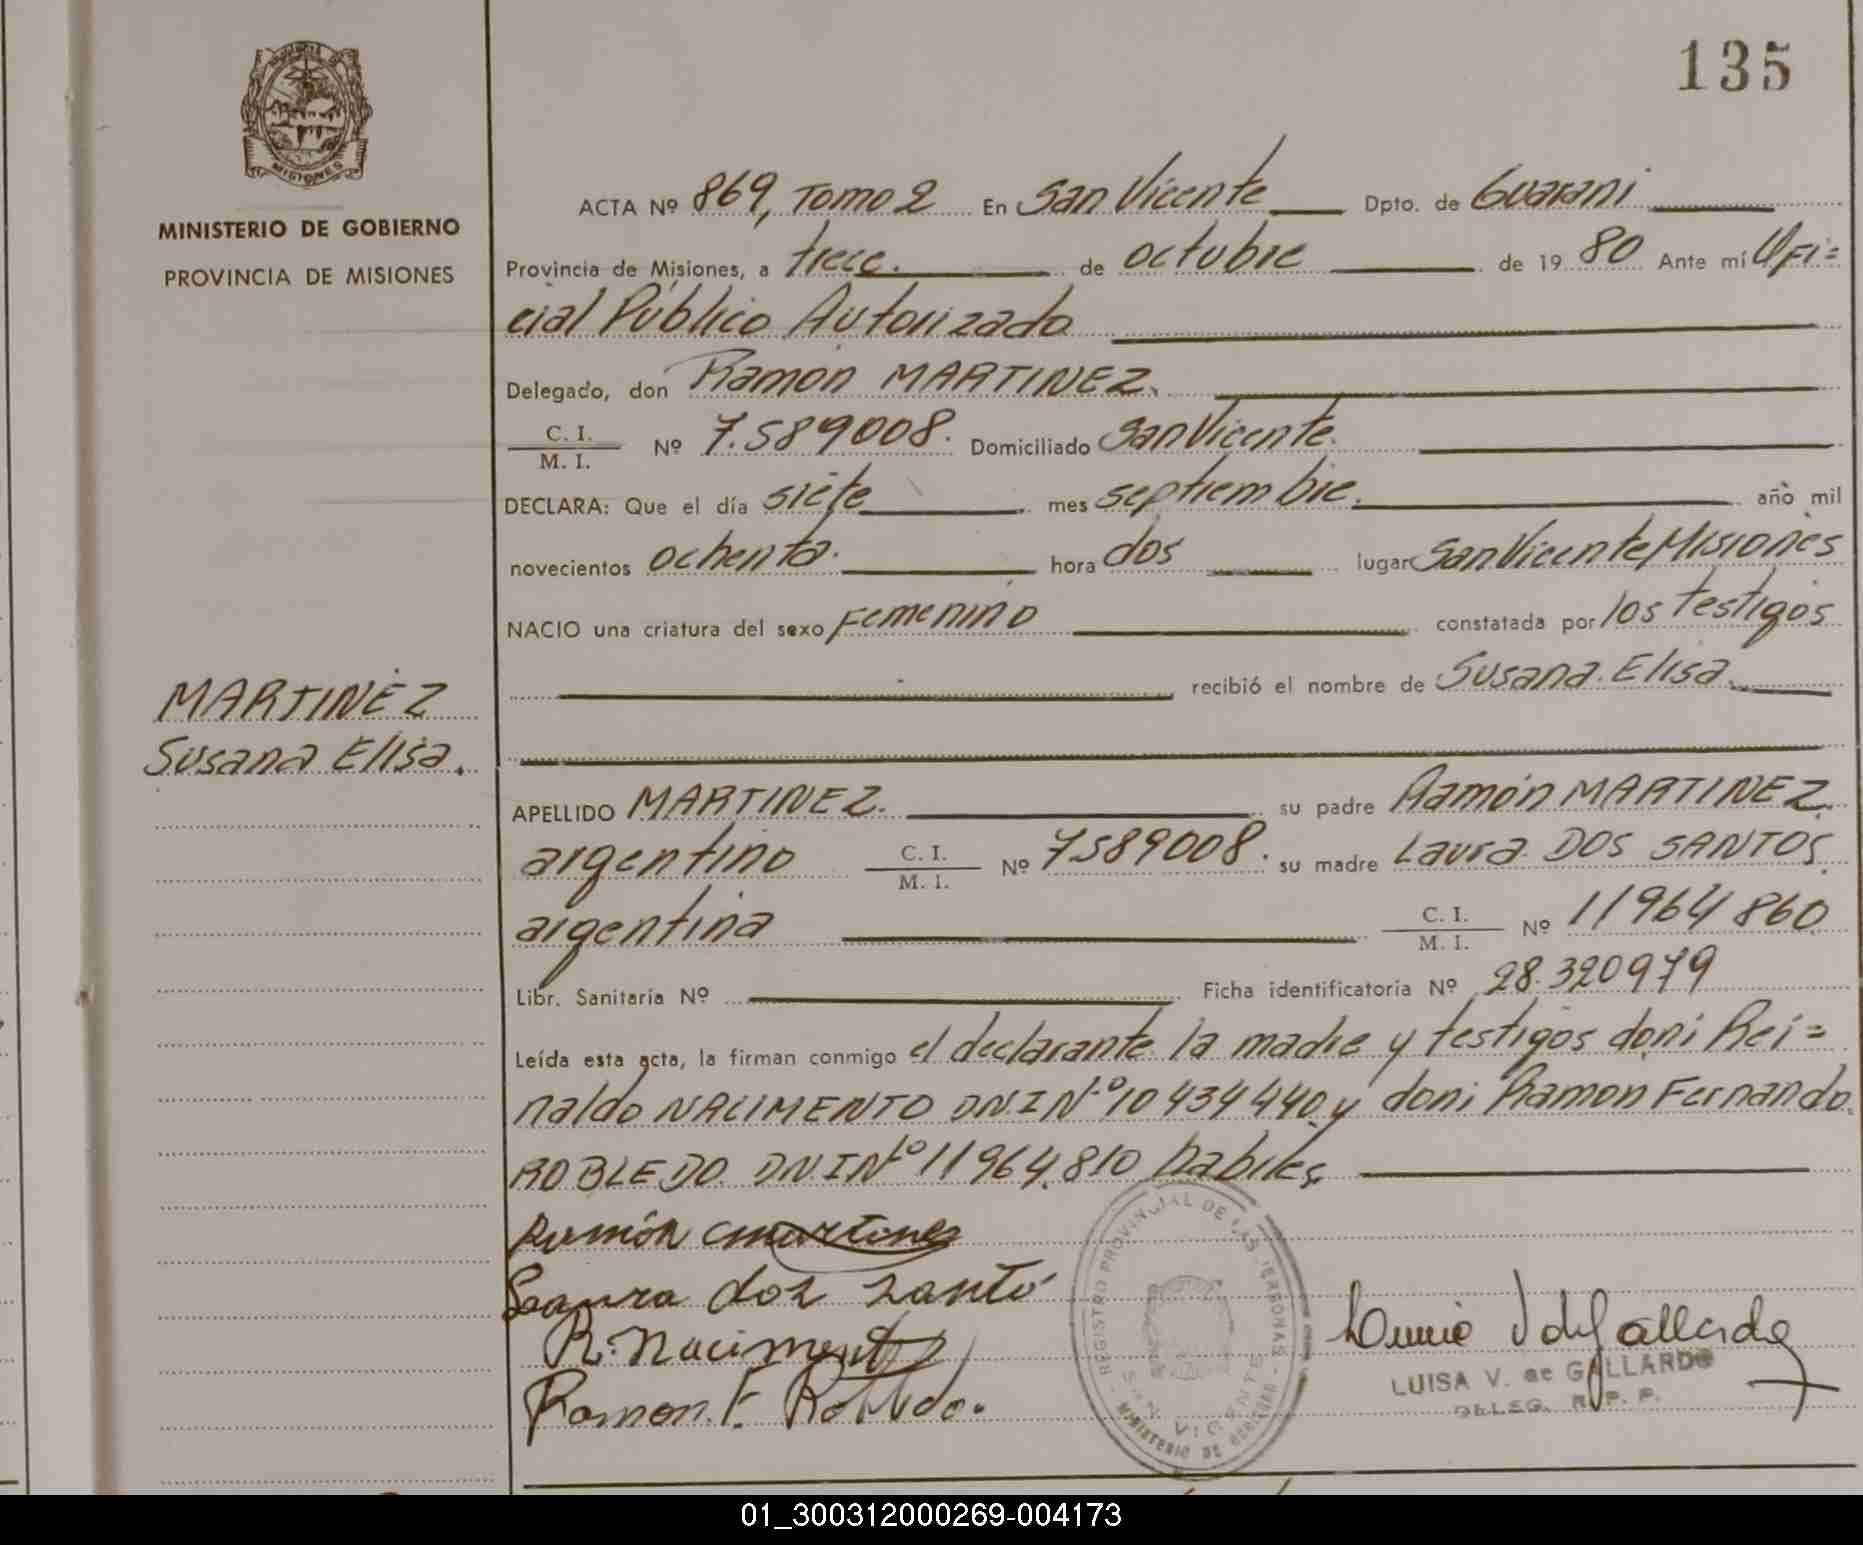 135
MISIONES
MINISTERIO DE GOBIERNO
PROVINCIA DE MISIONES
MARTINEZ
Susana Elisa.
ACTA Nº 869, Tomo 2 En San Vicente Dpto. de Guarani
Provincia de Misiones, a trece. de octubre de 1980 Ante mí Ofi=
cial Público Autorizado
Delegado, don Ramón MARTINEZ.
C. I.
M. I. Nº 7.589008. Domiciliado San Vicente.
DECLARA: Que el día siete mes septiembre. año mil
novecientos ochenta. hora dos lugar San Vicente Misiones
NACIO una criatura del sexo Femenino constatada por los testigos
recibió el nombre de Susana Elisa.
APELLIDO MARTINEZ. su padre Ramón MARTINEZ.
argentino C. I. M. I. Nº 7589008. su madre Laura DOS SANTOS.
argentina C. I. M. I. Nº 11964860
Libr. Sanitaria Nº Ficha identificatoria Nº 28.320979
Leída esta acta, la firman conmigo el declarante la madre y testigos don: Rei=
naldo NACIMENTO DNI Nº 10434440. y don: Ramon Fernando
ROBLEDO. DNI Nº 11964.810 habiles.
Ramón Martines
dos Santo
R. Naciment
Ramon. F. Robledo.
REGISTRO PROVINCIAL DE LAS PERSONAS
SAN VICENTE
MINISTERIO DE GOBIERNO
LUISA V. de GALLARDO
DELEG. R. P. P.
01_300312000269-004173